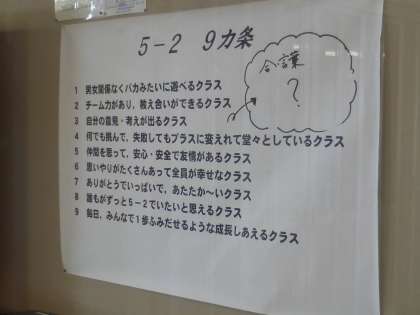 5-2 9カ条
合言葉
?
1 男女関係なくバカみたいに遊べるクラス
2 チーム力があり、教え合いができるクラス
3 自分の意見・考えが出るクラス
4 何でも挑んで、失敗してもプラスに変えれて堂々としているクラス
5 仲間を思って、安心・安全で友情があるクラス
6 思いやりがたくさんあって全員が幸せなクラス
7 ありがとうでいっぱいで、あたたか〜いクラス
8 誰もがずっと5-2でいたいと思えるクラス
9 毎日、みんなで1歩ふみだせるような成長しあえるクラス